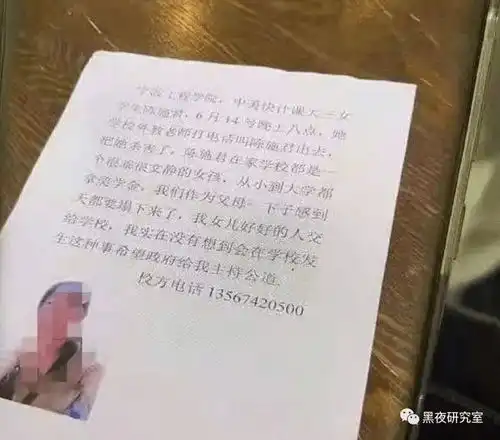 宁波工程学院,中美快计课大三女
学生陈施君,6月14号晚上八点,她
学校外教老师打电话叫陈施君出去,
把她杀害了,陈施君在家学校都是一
个很乖很文静的女孩,从小到大学都
拿奖学金,我们作为父母一下子感到
天都要塌下来了,我女儿好好的人交
给学校,我实在没有想到会在学校发
生这种事希望政府给我主持公道.
校方电话 13567420500
黑夜研究室